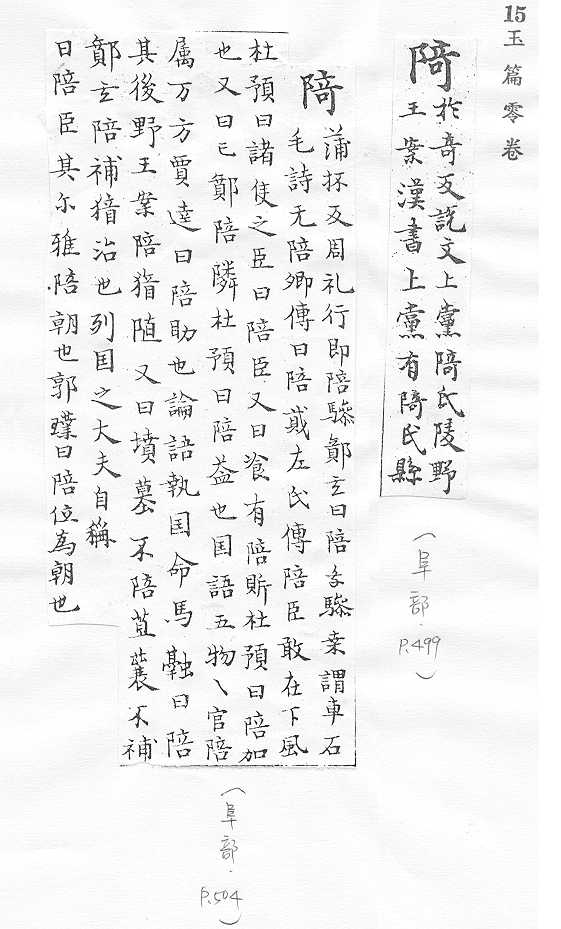 15 玉篇零卷
陭 於奇反說文上黨陭氏陵野
王案漢書上黨有陭氏縣
(阜部. P.499)
陭 蒲抔反周礼行即陪驂鄭玄曰陪乘驂乘謂車右
毛詩无陪卿傳曰陪貳左氏傳陪臣敢在下風
杜預曰諸侯之臣曰陪臣又曰飡有陪䁂杜預曰陪加
也又曰已鄭陪隣杜預曰陪益也国語五物〻官陪
属万方賈逵曰陪助也論語執国命馬融曰陪
其後野王案陪猶随又曰墳墓不陪苴蓑不補
鄭玄陪補猶治也列国之大夫自稱
曰陪臣其尓雅陪朝也郭璞曰陪位為朝也
(阜部. P.504)